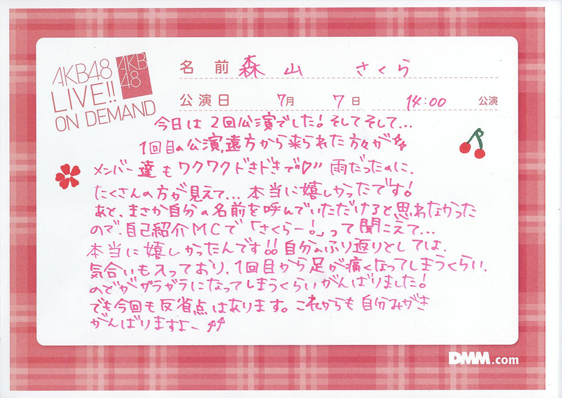 AKB48
LIVE!!
ON DEMAND
AKB
48
名前 森山 さくら
公演日 7月 7日 14:00 公演
今日は2回公演でした!そしてそして...
1回目の公演、遠方から来られた方々が
メンバー達もワクワクドキドキで♡ 雨だったのに、
たくさんの方が見えて...本当に嬉しかったです!
あと、まさか自分の名前を呼んでいただけると思わなかった
ので、自己紹介MCで「さくらー!」って聞こえて...
本当に嬉しかったんです!!自分のふり返りとしては、
気合いも入っており、1回目から足が痛くなってしまうくらい、
のどがガラガラになってしまうくらいがんばりました!
でも今回も反省点はあります。これからも自分みがき
がんばりますよ~
DMM.com